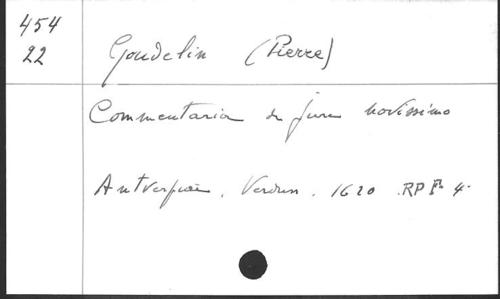 454
22
Goudelin (Pierre)
Commentaria de jure novissimo
Antverpiae. Verdun. 1620 .RP 4.